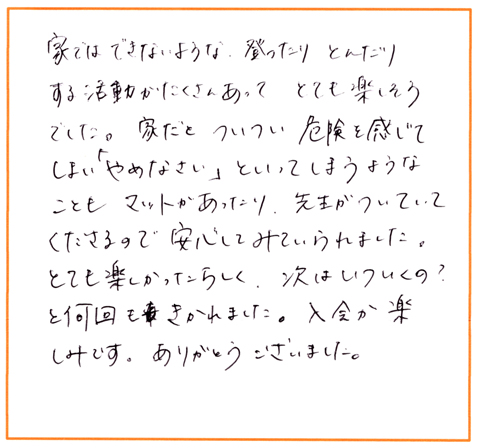 家ではできないような、登ったり とんだり
する活動がたくさんあって とても楽しそう
でした。家だと ついつい 危険を感じて
しまい「やめなさい」といってしまうような
ことも マットがあったり、先生がついていて
くださるので 安心してみていられました。
とても楽しかったらしく、次はいついくの?
と何回もきかれました。入会が楽
しみです。ありがとうございました。